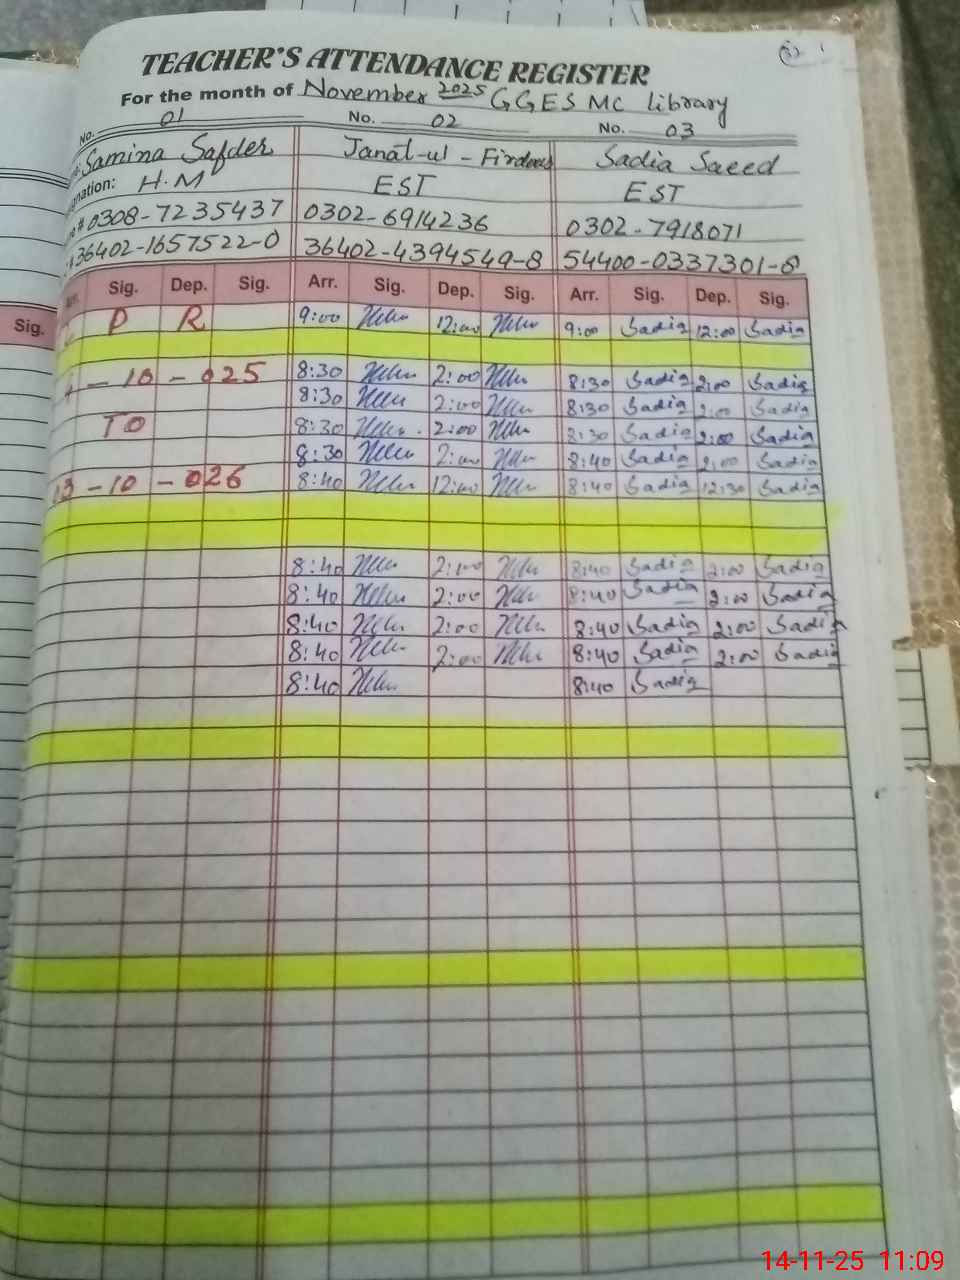 TEACHER'S ATTENDANCE REGISTER
For the month of November 2025 GGES MC library
No. 01 No. 02 No. 03
Samina Safder Janat-ul-Firdous Sadia Saeed
nation: H.M EST EST
# 0308-7235437 0302-6914236 0302-7918071
36402-1657522-0 36402-4394549-8 54400-0337301-8
Sig. Dep. Sig. Arr. Sig. Dep. Sig. Arr. Sig. Dep. Sig.
Sig.
P R 9:00 12:00 9:00 Sadia 12:00 Sadia
-10-025 8:30 2:00 8:30 Sadia 2:00 Sadia
8:30 2:00 8:30 Sadia 2:00 Sadia
TO 8:30 2:00 8:30 Sadia 2:00 Sadia
8:30 2:00 8:40 Sadia 2:00 Sadia
-10-026 8:40 12:00 8:40 Sadia 12:30 Sadia
8:40 2:00 8:40 Sadia 2:00 Sadia
8:40 2:00 8:40 Sadia 2:00 Sadia
8:40 2:00 8:40 Sadia 2:00 Sadia
8:40 2:00 8:40 Sadia 2:00 Sadia
8:40 8:40 Sadia
14-11-25 11:09